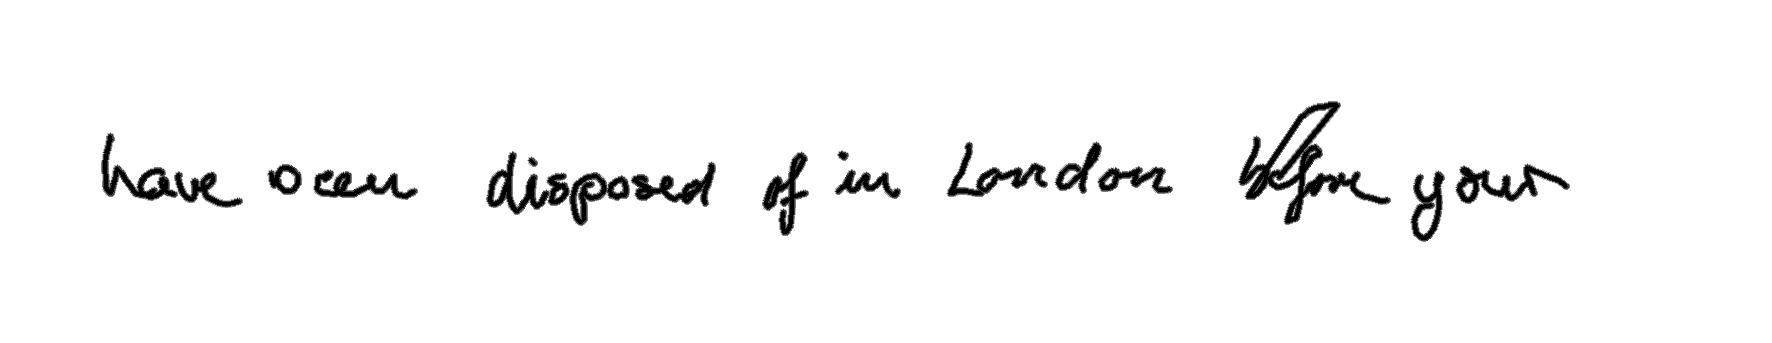 have been disposed of in London before your